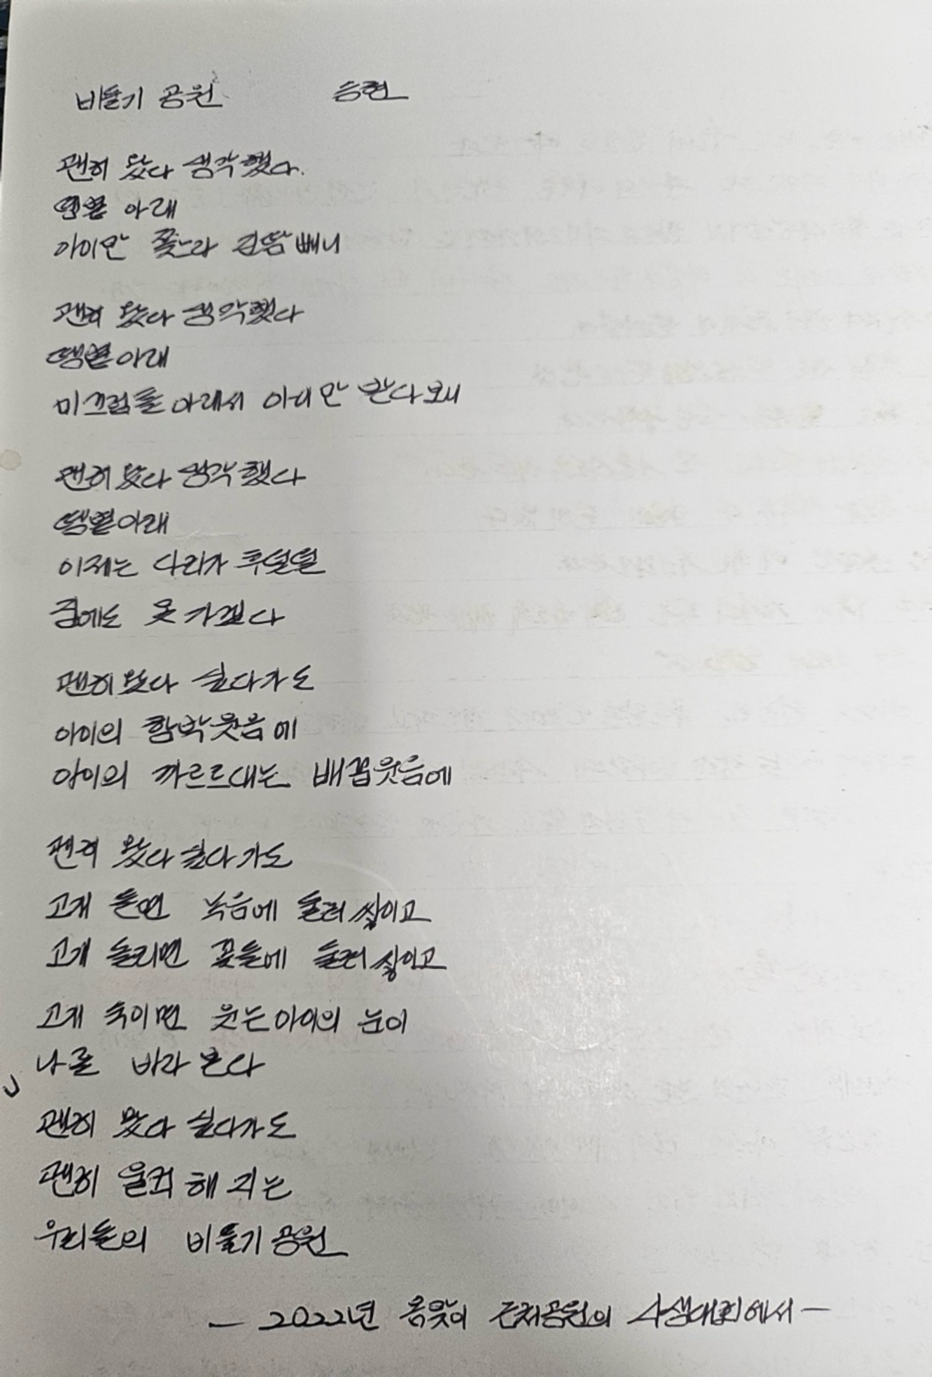 비둘기 공원 승현
괜히 왔다 생각했다.
땡볕 아래
아이만 쫓느라 진땀 빼니
괜히 왔다 생각했다
땡볕아래
미끄럼틀 아래서 아이만 받다보니
괜히 왔다 생각했다
땡볕아래
이제는 다리가 후덜덜
집에도 못 가겠다
괜히 왔다 싶다가도
아이의 함박웃음에
아이의 까르르대는 배꼽웃음에
괜히 왔다 싶다가도
고개 들면 녹음에 둘러 쌓이고
고개 돌리면 꽃들에 둘러 쌓이고
고개 숙이면 웃는 아이의 눈이
나를 바라 본다
괜히 왔다 싶다가도
괜히 울컥 해 지는
우리들의 비둘기 공원
— 2022년 봄맞이 근처공원의 사생대회에서 —